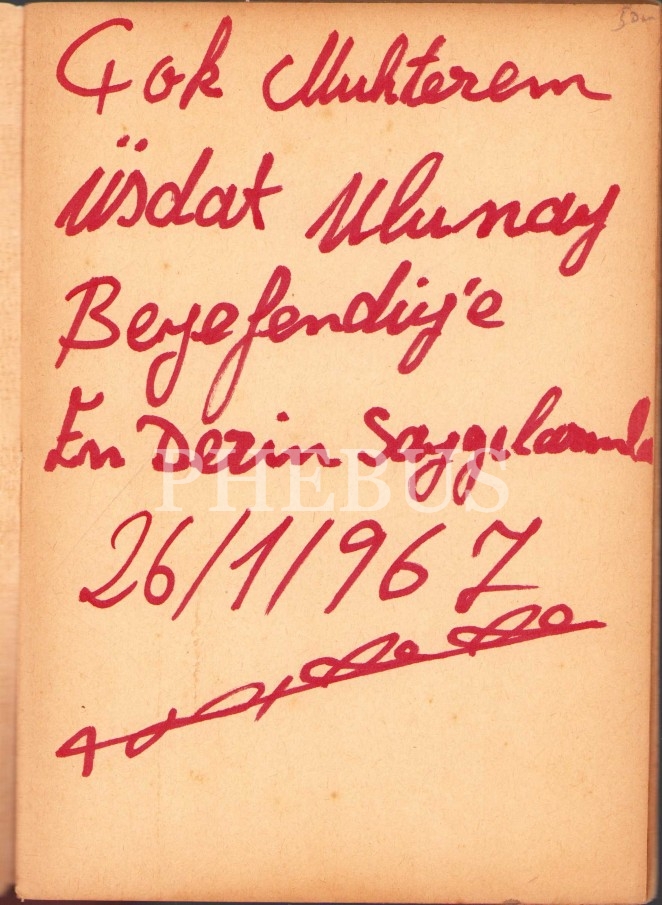 Çok Muhterem
Üsdat Ulunay
Beyefendiy'e
En Derin Saygılarımla
PHEBUS
26/1/967